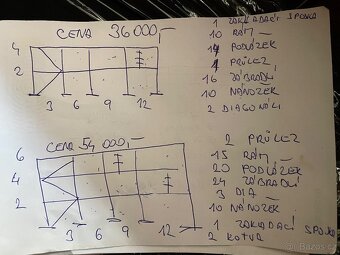 CENA 36 000,-
4
2
3 6 9 12
1 ZAKLADACÍ SPOJKA
10 RÁM
14 PODLÁŽEK
1 PRŮLEZ
16 ZÁBRADLÍ
10 NÁNOŽEK
2 DIAGONÁLI
CENA 54 000,-
6
4
2
3 6 9 12
2 PRŮLEZ
15 RÁM
20 PODLÁŽEK
24 ZÁBRADLÍ
3 DIA
10 NÁNOŽEK
1 ZAKLADACÍ SPOJKA
2 KOTVA